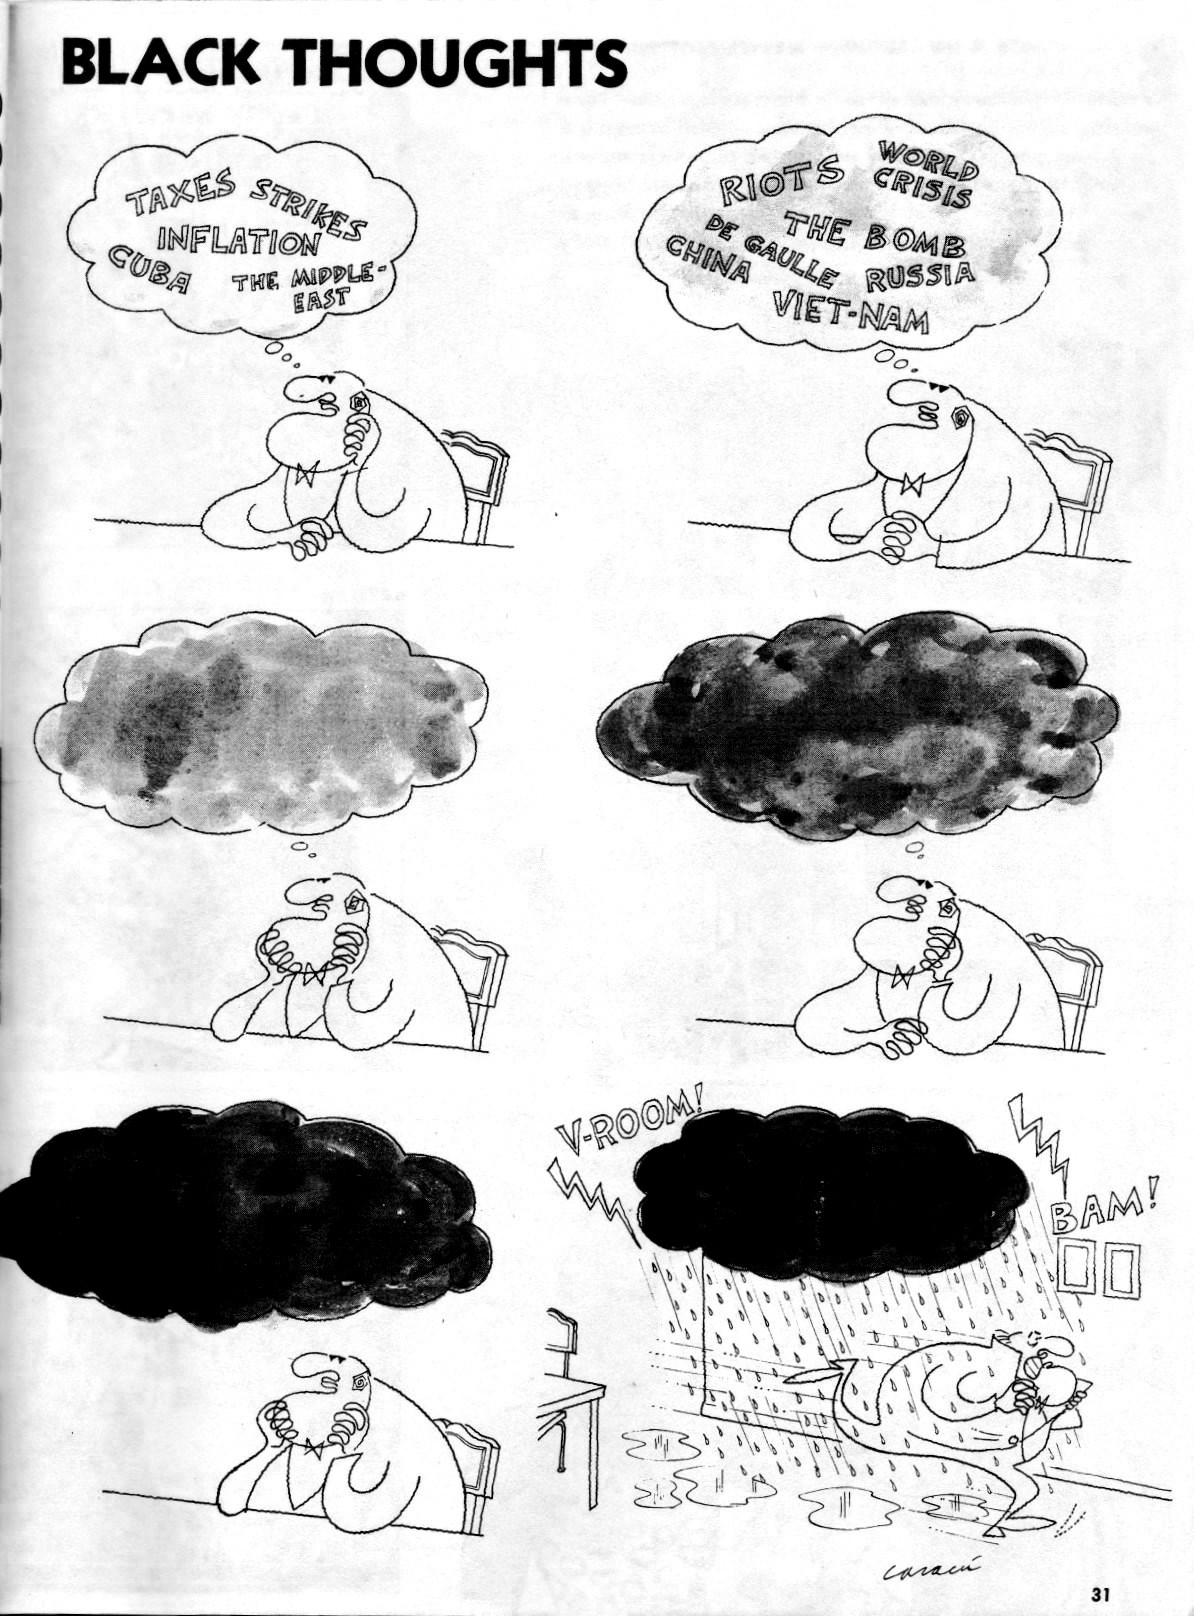 BLACK THOUGHTS
TAXES STRIKES
INFLATION
CUBA THE MIDDLE-
EAST
RIOTS WORLD
CRISIS
THE BOMB
DE GAULLE
CHINA RUSSIA
VIET-NAM
V-ROOM!
BAM!
31